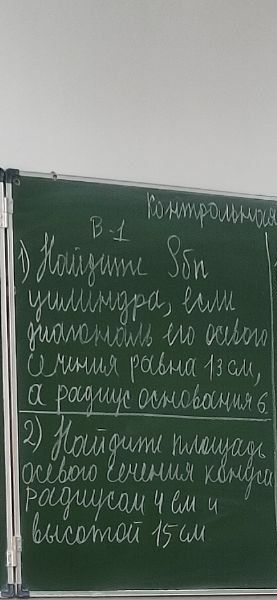 Контрольная
В-1
1) Найдите Sбп
цилиндра, если
диагональ его осевого
сечения равна 13 см,
а радиус основания 6
2) Найдите площадь
осевого сечения конуса
радиусом 4 см и
высотой 15 см